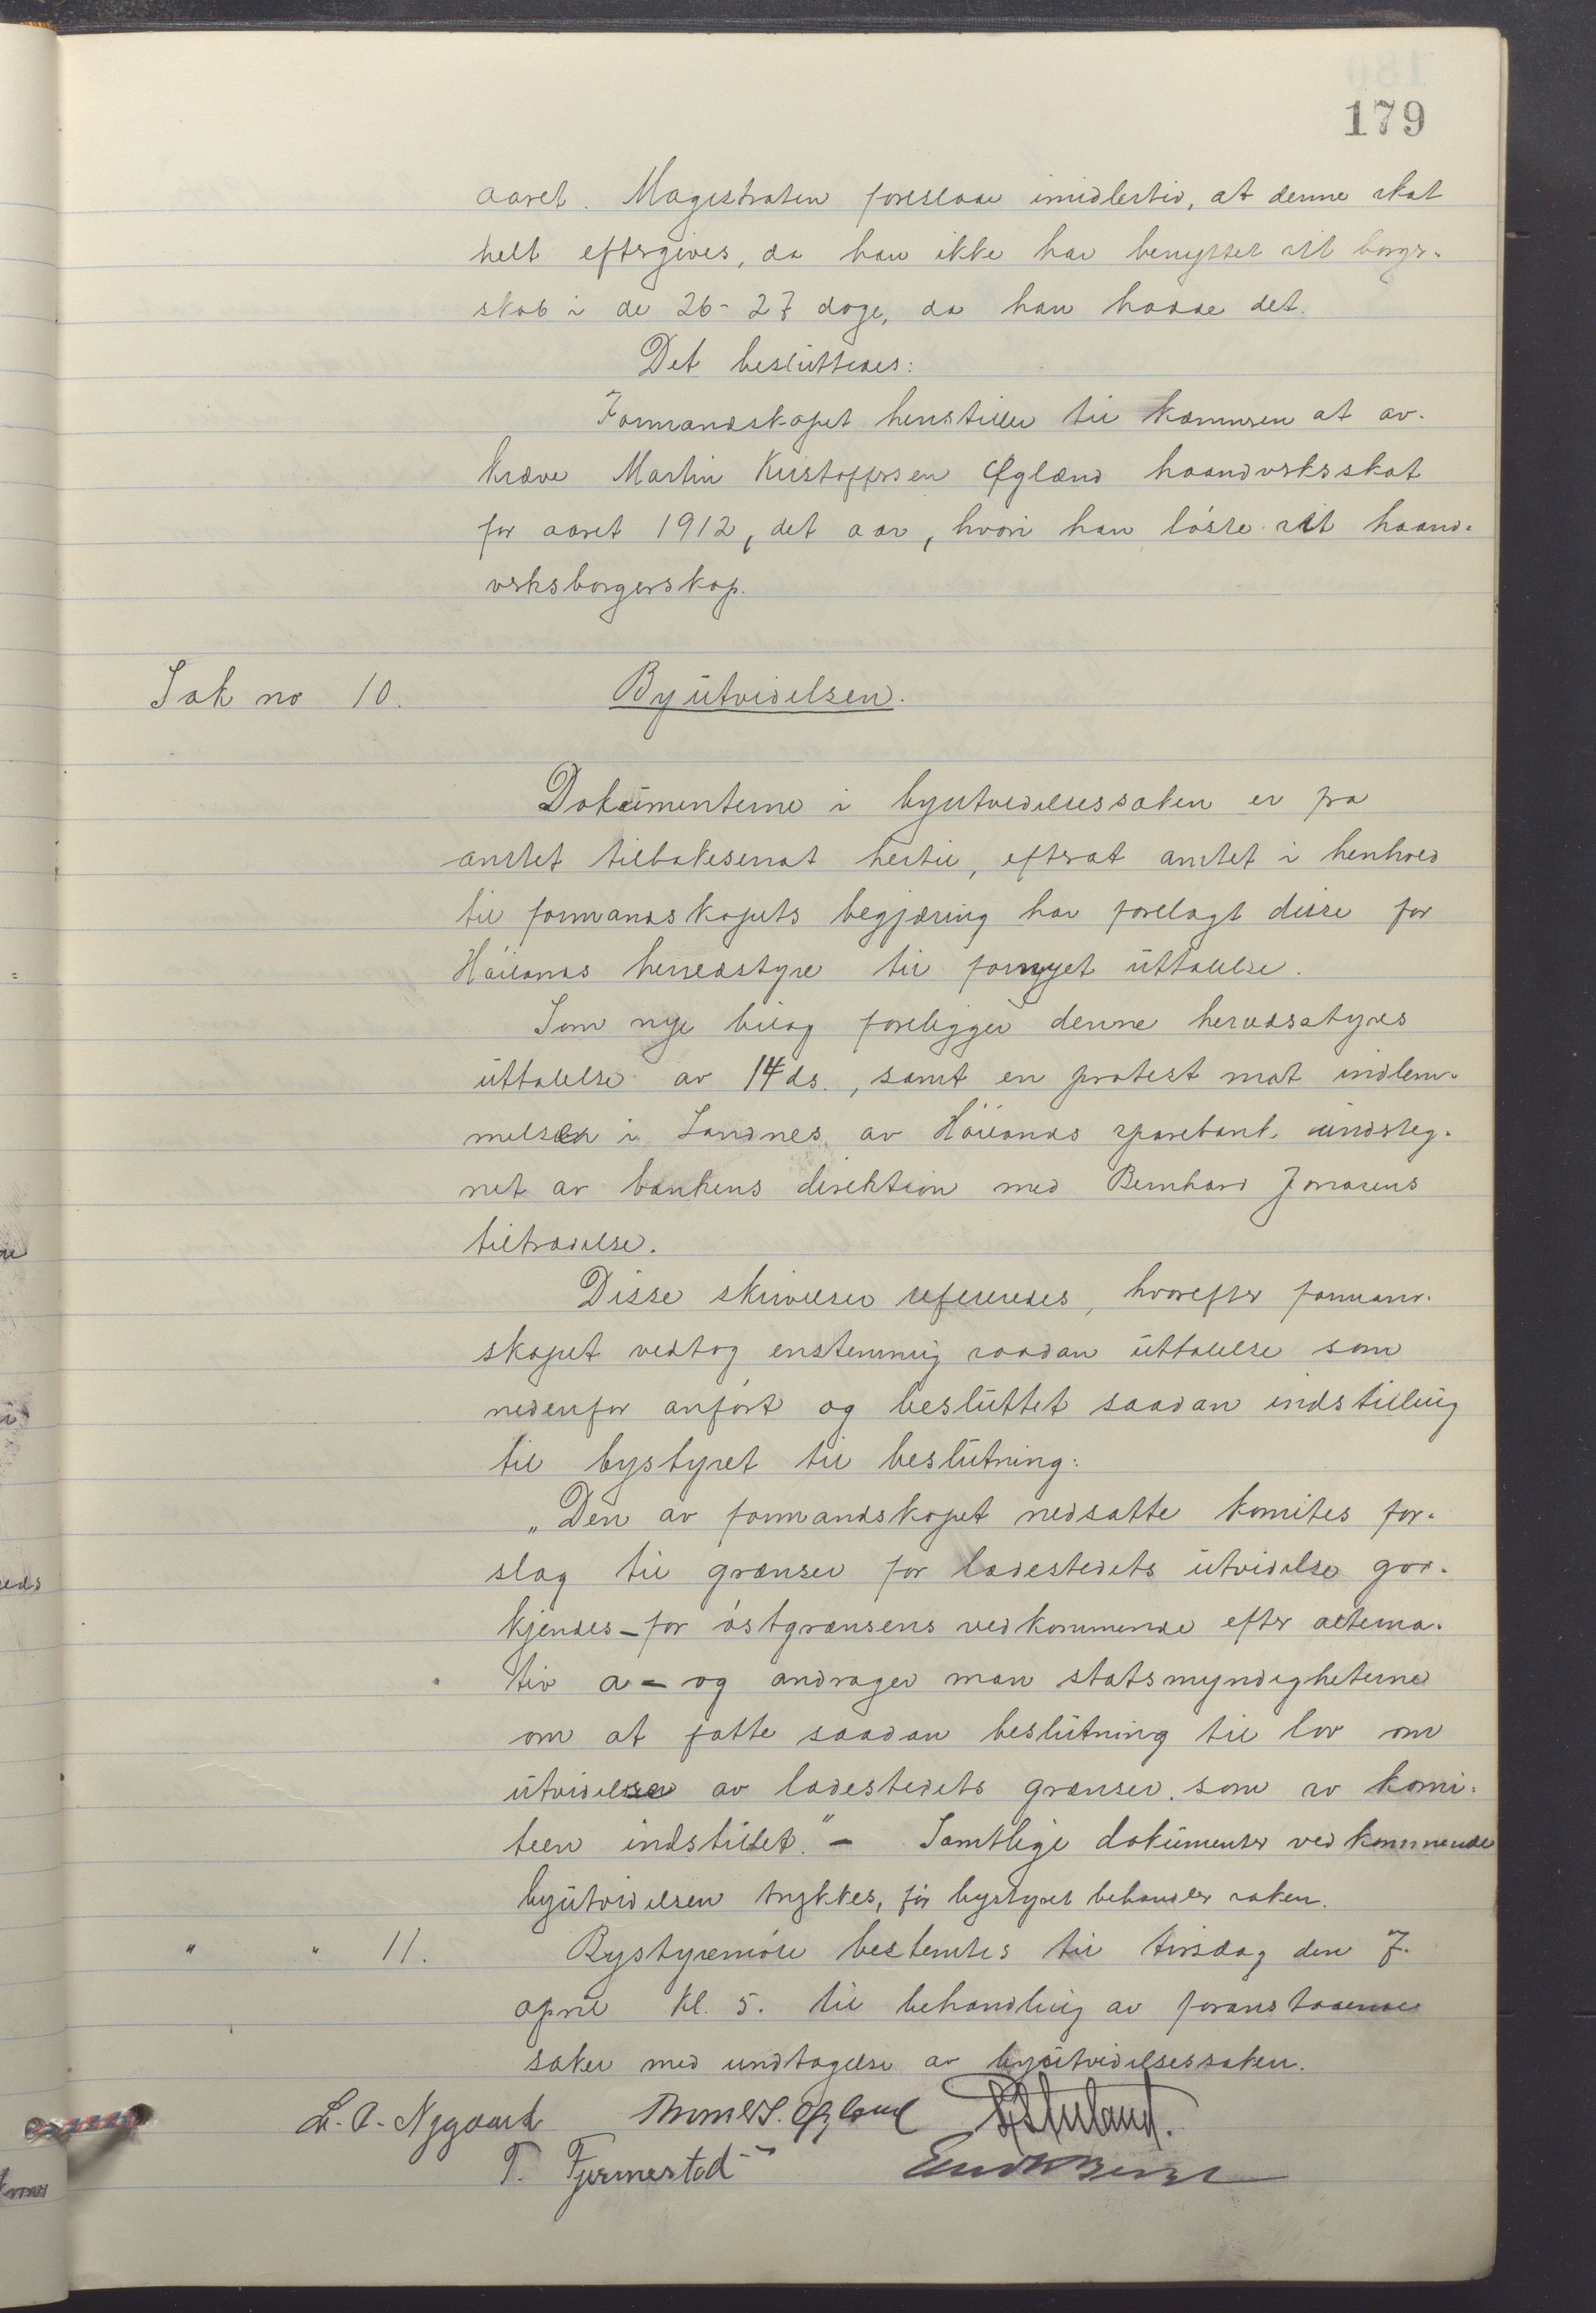 179
aaret. Magistraten foreslaar imidlertid, at denne skat
helt eftergives, da han ikke har benyttet sit borger-
skab i de 26-27 dage, da han hadde det.
Det besluttedes:
Formandskapet henstiller til kæmneren at av-
kræve Martin Kristoffersen Øglænd haandverksskat
for aaret 1912, det aar, hvori han løste sit haand-
verksborgerskap.
Sak no 10. Byutvidelsen.
Dokumenterne i byutvidelsessaken er fra
amtet tilbakesendt hertil, efterat amtet i henhold
til formandskapets begjæring har forelagt disse for
Høilands herredstyre til fornyet uttalelse.
Som nye bilag foreligger denne herredsstyres
uttalelse av 14 ds., samt en protest mot indlem-
melsen i Sandnes av Høilands sparebank undateg-
net av bankens direktion med Bernhard Jonasens
tiltrædelse.
Disse skrivelser refereredes, hvorefter formand-
skapet vedtog enstemmig saadan uttalelse som
nedenfor anført og besluttet saadan indstilling
til bystyret til beslutning:
„Den av formandskapet nedsatte komites for-
slag til grænser for ladestedets utvidelse god-
kjendes – for østgrænsens vedkommende efter alterna-
tiv a – og andrager man statsmyndigheterne
om at fatte saadan beslutning til lov om
utvidelse av ladestedets grænser som av komi-
teen indstillet.” – Samtlige dokumenter vedkommende
byutvidelsen trykkes, før bystyret behandler saken.
" " 11. Bystyremøte bestemtes til tirsdag den 7.
april kl. 5. til behandling av foranstaaende
saker med undtagelse av byutvidelsessaken.
L. A. Nygaard Øglænd
T. Fjermestad